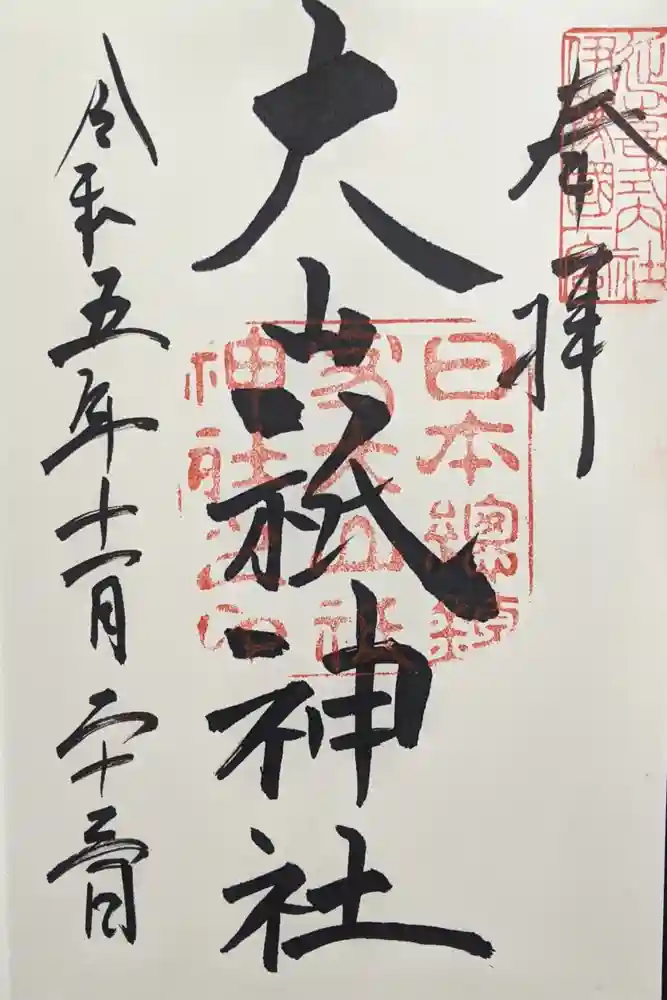 延喜式内社
伊豫國一宮
奉拝
大山祇神社
日本總鎮
守大山祇
神社之印
令和五年十一月二十三日